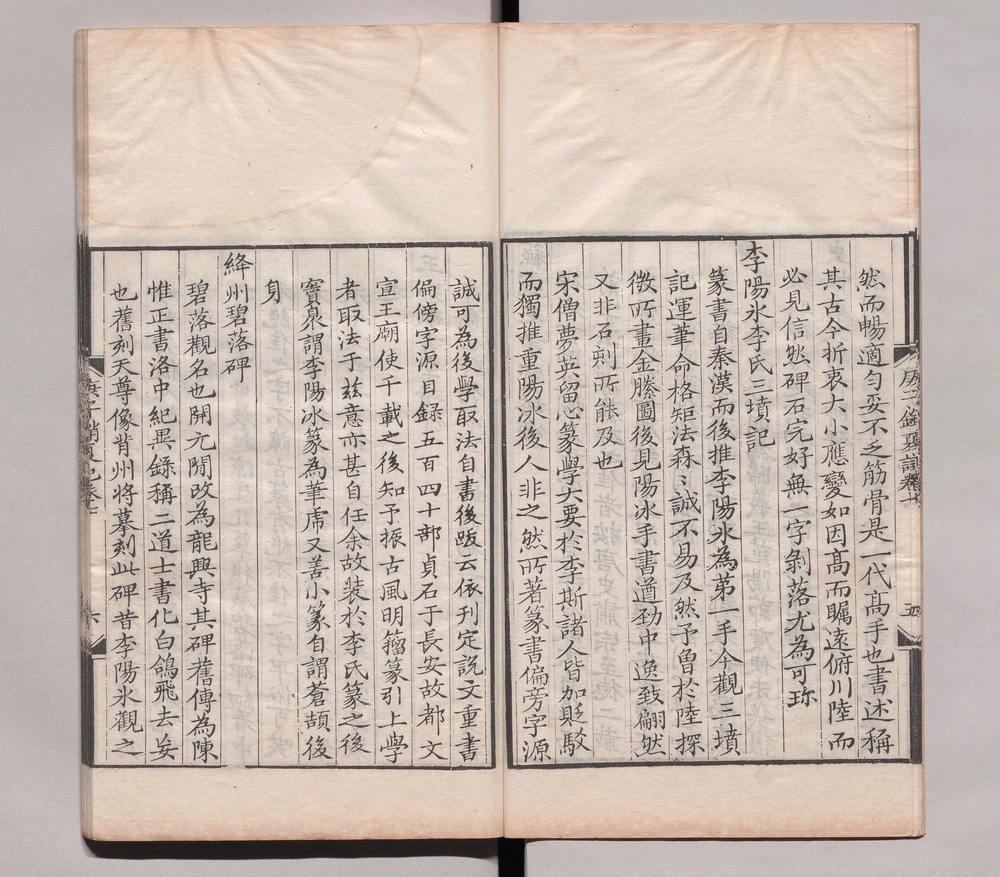 然而暢適勻妥不乏筋骨是一代髙手也書述稱
其古今折衷大小應變如因髙而瞩逺俯川陸而
必見信然碑石完好無一字剝落尤為可珎
李陽氷李氏三墳記
篆書自秦漢而後推李陽氷為第一手今觀三墳
記運筆命格矩法森〻誠不易及然予曽扵陸探
微所畫金縢圖後見陽氷手書遒勁中逸致翩然
又非石刻所能及也
宋僧夢英留心篆學大要扵李斯諸人皆加貶駁
而獨推重陽冰後人非之然所著篆書偏旁字源
五
誠可為後學取法自書後跋云依刊定説文重書
偏傍字源目録五百四十部貞石于長安故都文
宣王廟使千載之後知予振古風明籀篆引上學
者取法于兹意亦甚自任余故装扵李氏篆之後
竇臮謂李陽冰篆為筆虎又善小篆自謂蒼頡後
身
絳州碧落碑
碧落觀名也開元間改為龍興寺其碑舊傳為陳
惟正書洛中紀異錄稱二道士書化白鴿飛去妄
也舊刻天尊像背州將摹刻此碑昔李陽氷觀之
六